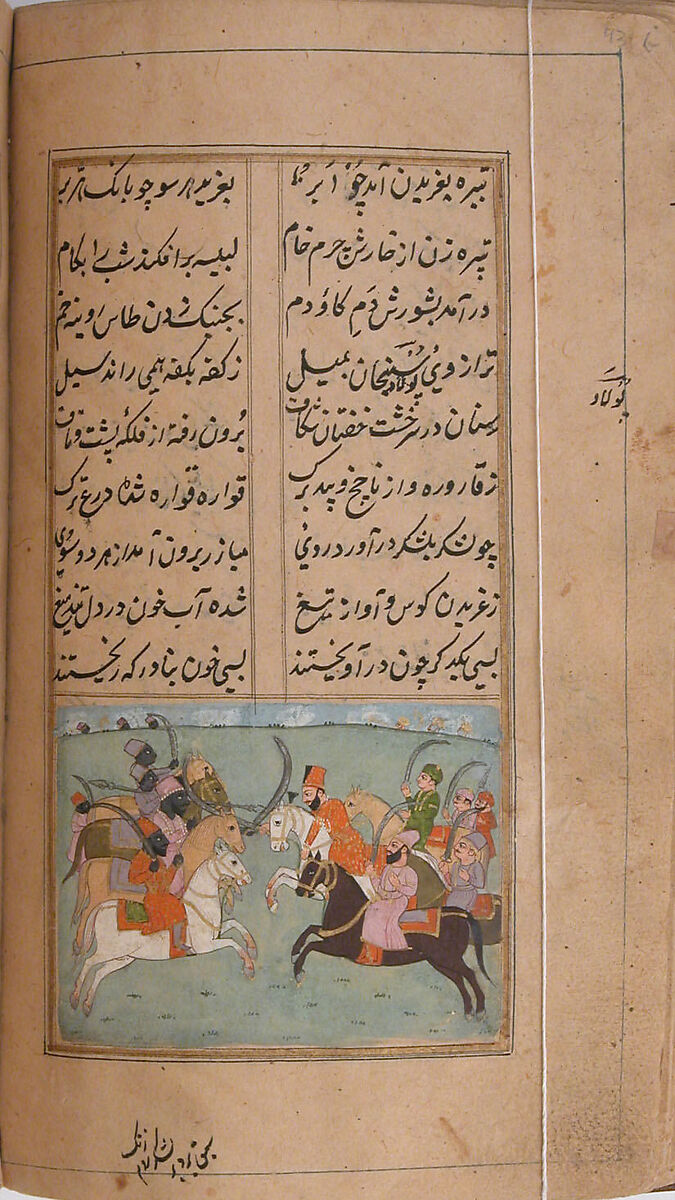 تبیره بغریدن آمد چو ابر بغرید هر سو چو بانک هزبر
تبیره زن از خارش چرم خام لبیسه برافکند شب را بکام
درآمد بشورش دم کاو دم بجنبک زدن طاس روینه خم
ترازوی پولاد سنجان بمیل ز کفه بکفه همی راند سیل
پولاد
سنان در سرخشت خفتان شکاف برون رفته از فلکه پشت و ناف
ز قاروره و از ناچخ و بید برک قواره قواره شده درع و ترک
چون لشکر بلشکر درآورد روی مبارز برون آمد از هر دو سوی
ز غریدن کوس و آواز تیغ شده آب خون در دل تند میغ
بسی یکدکر چون درآویختند بسی خون بناورد که ریختند